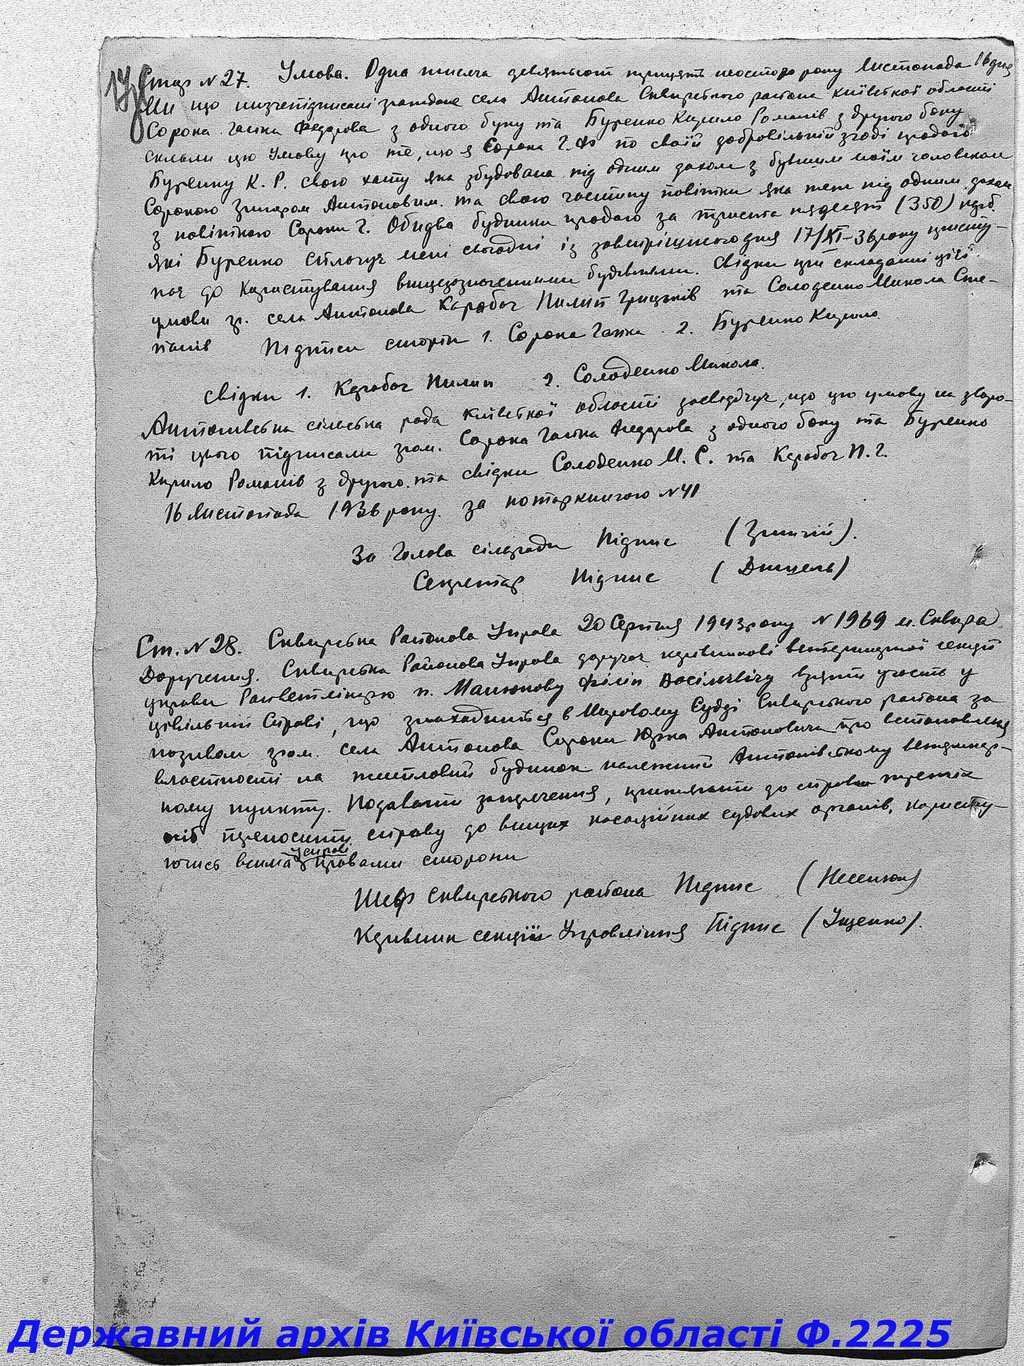 Стор №27. Умова. Одна тисяча девятьсот тридцять шостого року Листопада 16 дня
Ми що нижчепідписані громадяне села Антонова Сквирського району Київської області
Сорока Ганна Федорова з одного боку та Буренко Кирило Романів з другого боку
склали цю Умову про те, що я Сорока Г. Ф. по своїй добровільній згоді продаю
Буренку К. Р. свою хату яка збудована під одним дахом з бувшим моїм чоловіком
Сорокою Антоновим. та свою частину повітки яка теж під одним дахом
з повіткою Сороки Г. Обидва будинки продаю за триста пядесят (350) крб.
які Буренко сплачує мені сьогодні із завтрішнього дня 17/XI-36 року присту-
пає до користування вищезазначеними будівлями. Свідки при складанні цієї
умови гр. села Антонова Карабач Пилип Грицьків та Солоденко Микола Сте-
панів Підписи сторін 1. Сорока Ганна. 2. Буренко Кирило
свідки 1. Карабач Пилип 2. Солоденко Микола.
Антонівська сільська рада Київської області засвідчує, що цю умову на зворо-
ті цього підписали гром. Сорока Ганна Федорова з одного боку та Буренко
Кирило Романів з другого. та свідки Солоденко М. С. та Карабач П. Г.
16 Листопада 1936 року. за нотаркнигою №41
За Голова сільради Підпис
Секретар Підпис
Ст. №28. Сквирська Районова Управа 20 Серпня 1943 року №1969 м. Сквира
Доручення. Сквирська Районова Управа доручає керівникові ветеринарної секції
управи Райветлікарю п. Філіп Васільвічу взяти участь у
цівільній справі, що знаходиться в Мировому Судді Сквирського района за
позивом гром. села Антонова Сороки Юрка Антоновича про встановлення
властності на житловий будинок належний Антонівському ветеринар-
ному пункту. Подавати заперечення, притягати до справи третіх
осіб переносити справу до вищих касаційних судових органів, користу-
ючись всима усіма правами сторони
Шеф Сквирського района Підпис
Керівник секції Управління Підпис (Іщенко).
Державний архів Київської області Ф.2225